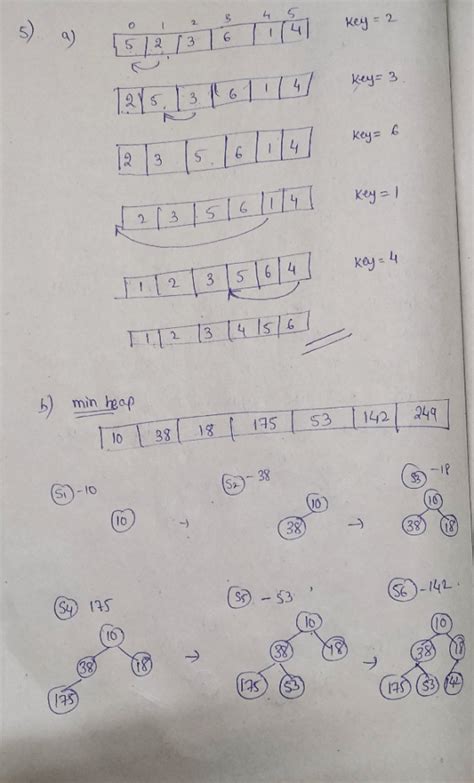 5) a) 0 1 2 3 4 5
5 2 3 6 1 4 key = 2
2 5 3 6 1 4 key = 3
2 3 5 6 1 4 key = 6
2 3 5 6 1 4 key = 1
1 2 3 5 6 4 key = 4
1 2 3 4 5 6
b) min heap
10 38 18 175 53 142 249
S1 - 10 S2 - 38 S3 - 18
10 → 10 → 10
38 38 18
S4 175 S5 - 53 S6 - 142
10 → 10 → 10
38 18 38 18 38 18
175 175 53 175 53 142